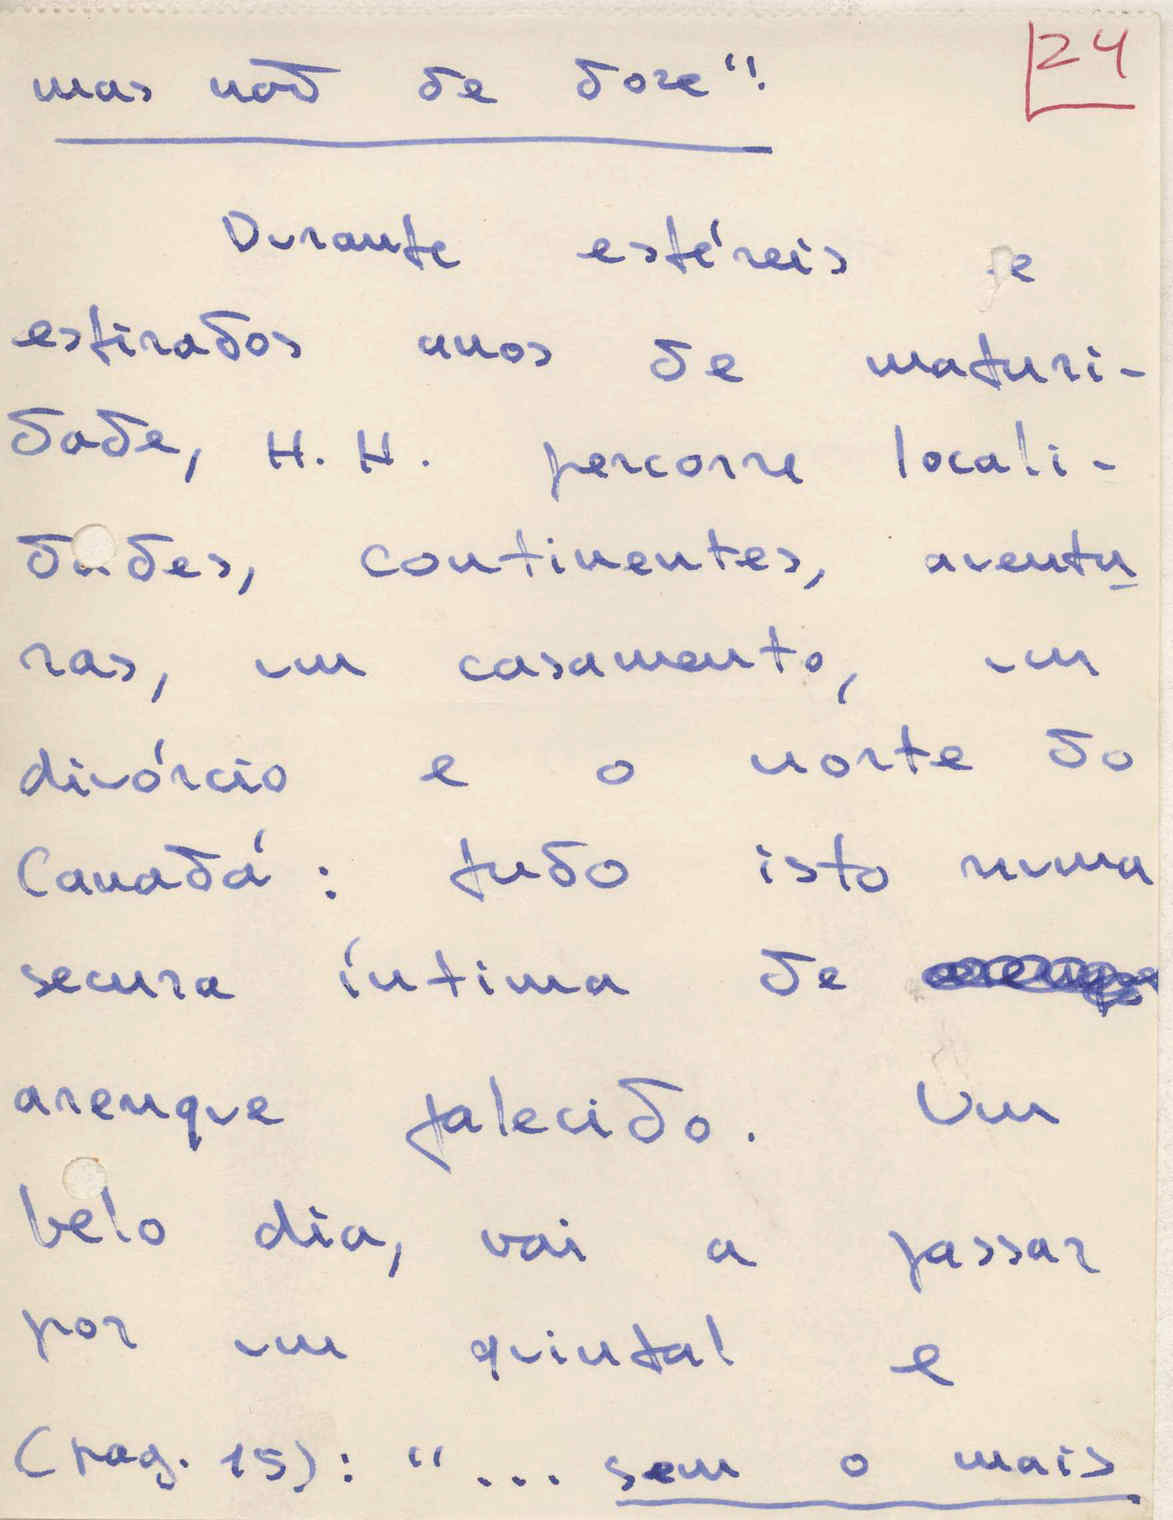 24
mas não de doze".
Durante estéreis e
estirados anos de maturi-
dade, H. H. percorre locali-
dades, continentes, aventu
ras, um casamento, um
divórcio e o norte do
Canadá: tudo isto numa
secura íntima de
arenque falecido. Um
belo dia, vai a passar
por um quintal e
(pag. 15): "... sem o mais